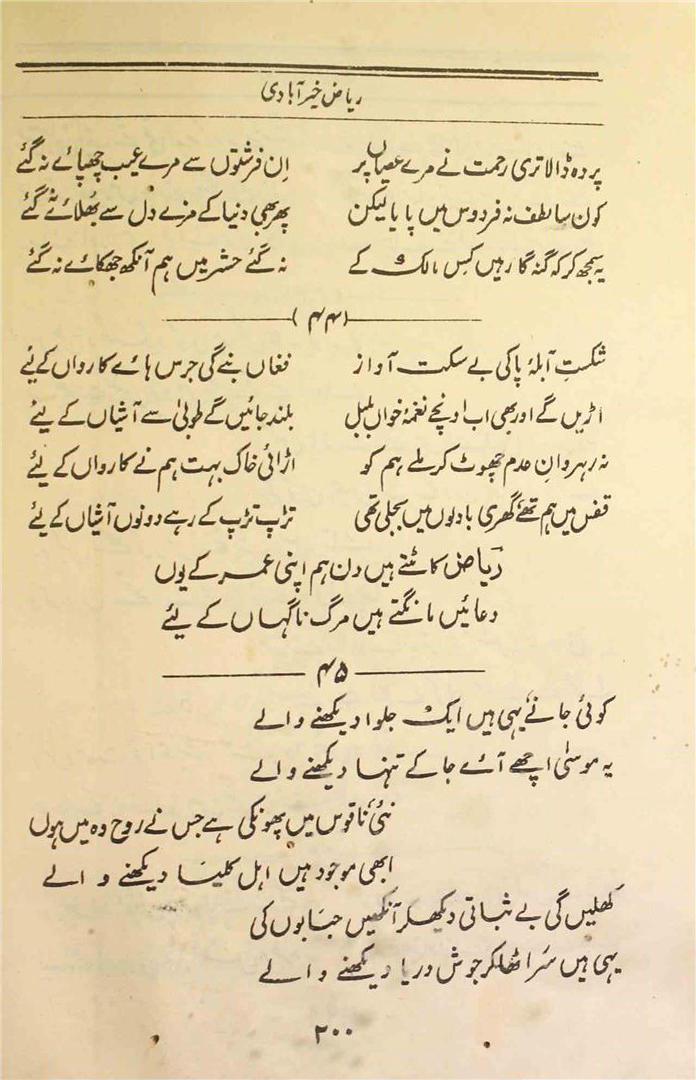 ریاض خیرآبادی
پردہ ڈالا تری رحمت نے مرے عصیاں پر ان فرشتوں سے مرے عیب چھپائے نہ گئے
کون سا لطف نہ فردوس میں پایا لیکن پھر بھی دنیا کے مزے دل سے بھلائے نہ گئے
یہ سمجھ کر کہ گنہگار ہیں کس مالک کے نہ گئے حشر میں ہم آنکھ جھکائے نہ گئے
(۴۴)
شکستِ آبلۂ پا کی بے سکت آواز فغاں بنے گی جرس ہائے کارواں کے لیے
اڑیں گے اور بھی اب اونچے نغمہ خواں بلبل بلند جائیں گے طوبیٰ سے آشیاں کے لیے
نہ رہروانِ عدم چھوٹ کر ملے ہم کو اڑائی خاک بہت ہم نے کارواں کے لیے
قفس میں ہم تھے گھری بادلوں میں بجلی تھی تڑپ تڑپ کے رہے دونوں آشیاں کے لیے
ریاض کاٹتے ہیں دن ہم اپنی عمر کے یوں
دعائیں مانگتے ہیں مرگ ناگہاں کے لیے
۴۵
کوئی جانے یہی ہیں ایک جلوا دیکھنے والے
یہ موسیٰ اچھے آئے جا کے تنہا دیکھنے والے
نئی ناقوس میں پھونکی ہے جس نے روح وہ میں ہوں
ابھی موجود ہیں اہل کلیسا دیکھنے والے
کھلیں گی بے ثباتی دیکھکر آنکھیں حبابوں کی
یہی ہیں سر اٹھا کر جوش دریا دیکھنے والے
۲۰۰